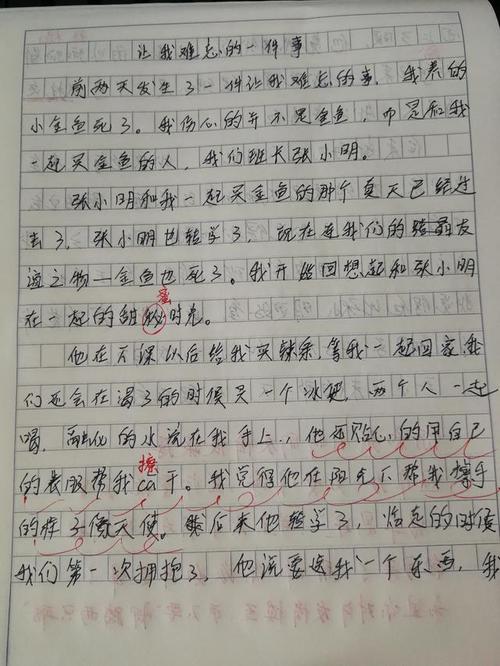 让我难忘的一件事
前两天发生了一件让我难忘的事,我养的
小金鱼死了。我伤心的并不是金鱼,而是和我
一起买金鱼的人,我们班长张小明。
张小明和我一起买金鱼的那个夏天已经过
去了,张小明也转学了,现在连我们的友
谊之物一金鱼也死了。我开始回想起和张小明
蜜
在一起的甜秘时光。
他在下课以后给我买辣条,等我一起回家,我
们还会在渴了的时候买一个冰棍,两个人一起
喝,融化的水流在我手上.,他还贴心的用自己
擦
的衣服帮我ca干。我觉得他在阳光下帮我擦手
的样子像天使。后来他转学了,临走的时候
我们第一次拥抱了,他说要送我一个东西,我